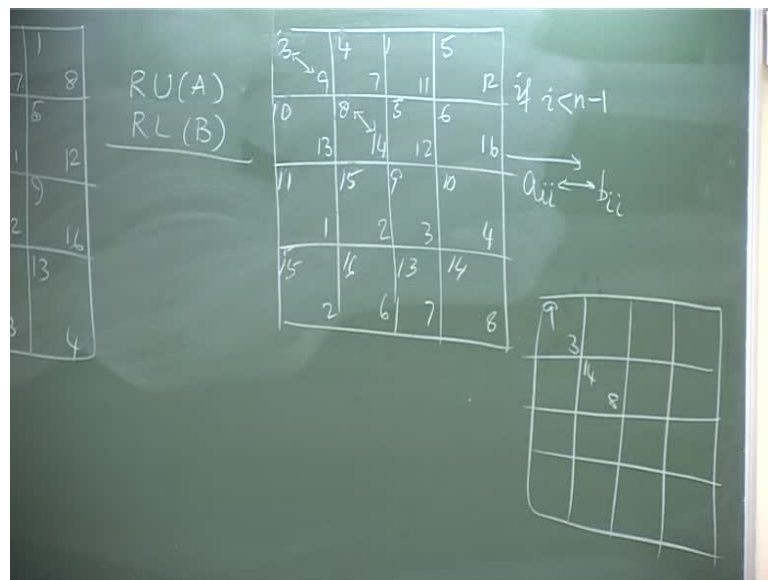 1
7 8
5
1 12
9
2 16
13
3 4
RU(A)
RL(B)
3 4 1 5
9 7 11 12
10 8 5 6
13 14 12 16
11 15 9 10
1 2 3 4
15 16 13 14
2 6 7 8
if i<n-1
aii ↔ bii
9
3
14
8